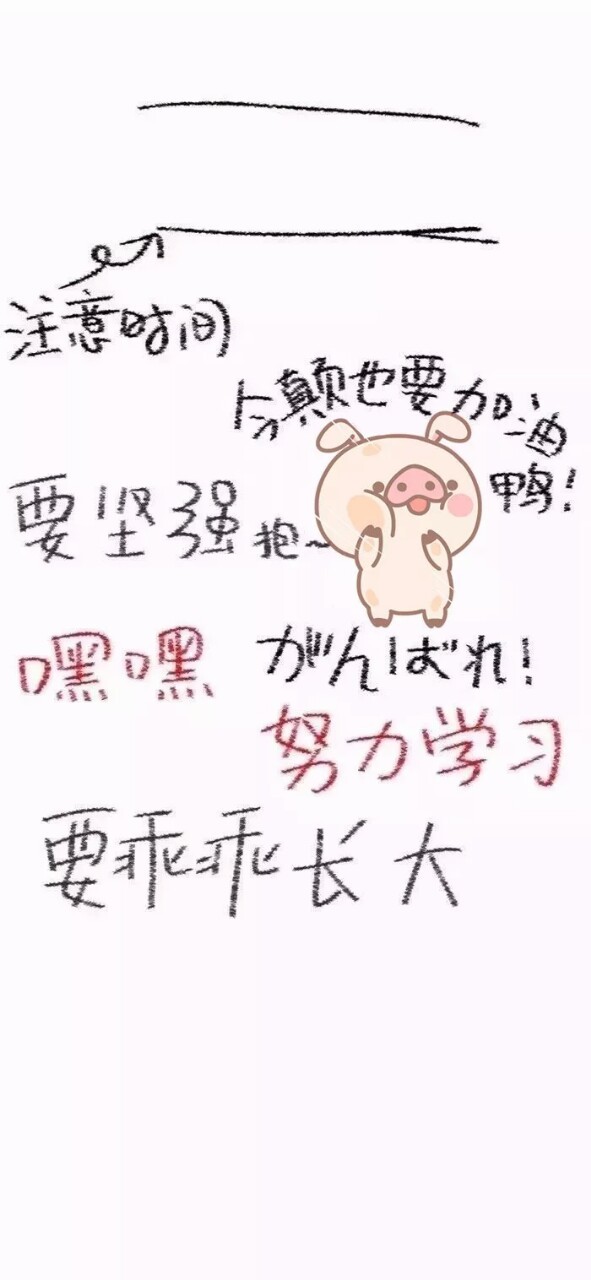 注意时间
今颠也要加油鸭!
要坚强
抱~
嘿嘿
がんばれ!
努力学习
要乖乖长大